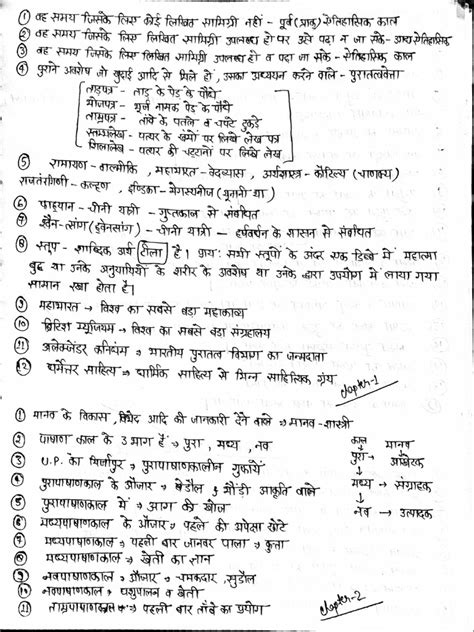 ① वह समय जिसके लिए कोई लिखित सामिग्री नहीं - पूर्व (प्राक्) ऐतिहासिक काल
② वह समय जिसके लिए लिखित सामिग्री उपलब्ध हो पर उसे पढा न जा सके - आद्य ऐतिहासिक
③ वह समय जिसके लिए लिखित सामिग्री उपलब्ध हो व पढा जा सके - ऐतिहासिक काल
④ पुराने अवशेष जो खुदाई आदि से मिले हो, उसका अध्ययन करने वाले - पुरातत्ववेत्ता
ताड़पत्र - ताड़ के पेड़ के पौधे
भोजपत्र - भूर्ज नामक पेड़ के पौधे
ताम्रपत्र - तांबे के पतले व चपटे टुकड़े
स्तम्भलेख - पत्थर के खंभों पर लिखे लेख
शिलालेख - पत्थर की चट्टानों पर लिखे लेख
⑤ रामायण - वाल्मीकि, महाभारत - वेदव्यास, अर्थशास्त्र - कौटिल्य (चाणक्य)
राजतंरगिणी - कल्हण, इण्डिका - मेगस्थनीज (यूनानी था)
⑥ फाह्यान - चीनी यात्री - गुप्तकाल से संबंधित
⑦ ह्वैन-त्सांग (ह्वेनसांग) - चीनी यात्री - हर्षवर्धन के शासन से संबंधित
⑧ स्तूप - शाब्दिक अर्थ टीला है। प्रायः सभी स्तूपों के अंदर एक डिब्बे में महात्मा
बुद्ध या उनके अनुयायियों के शरीर के अवशेष या उनके द्वारा उपयोग में लाया गया
सामान रखा होता है।
⑨ महाभारत → विश्व का सबसे बडा महाकाव्य
⑩ ब्रिटिश म्यूजियम → विश्व का सबसे बडा संग्रहालय
⑪ अलेक्जेंडर कनिंघम → भारतीय पुरातत्व विभाग का जन्मदाता
⑫ धर्मेत्तर साहित्य → धार्मिक साहित्य से भिन्न साहित्यिक ग्रंथ
chapter-1
① मानव के विकास, आदि की जानकारी देने वाले → मानव-शास्त्री
② पाषाण काल के 3 भाग हैं → पुरा, मध्य, नव
③ U.P. का मिर्जापुर → पुरापाषाणकालीन गुफायें
④ पुरापाषाणकाल के औजार → बेडौल व भौंडी आकृति वाले
⑤ पुरापाषाणकाल में → आग की खोज
⑥ मध्यपाषाणकाल के औजार → पहले की अपेक्षा छोटे
⑦ मध्यपाषाणकाल → पहली बार जानवर पाला → कुत्ता
⑧ मध्यपाषाणकाल → खेती का ज्ञान
⑨ नवपाषाणकाल → औजार → चमकदार, सुडौल
⑩ नवपाषाणकाल → पशुपालन व खेती
⑪ ताम्रपाषाणकाल → पहली बार तांबे का प्रयोग
काल मानव
पुरा → आखेटक
मध्य → संग्राहक
नव → उत्पादक
chapter-2